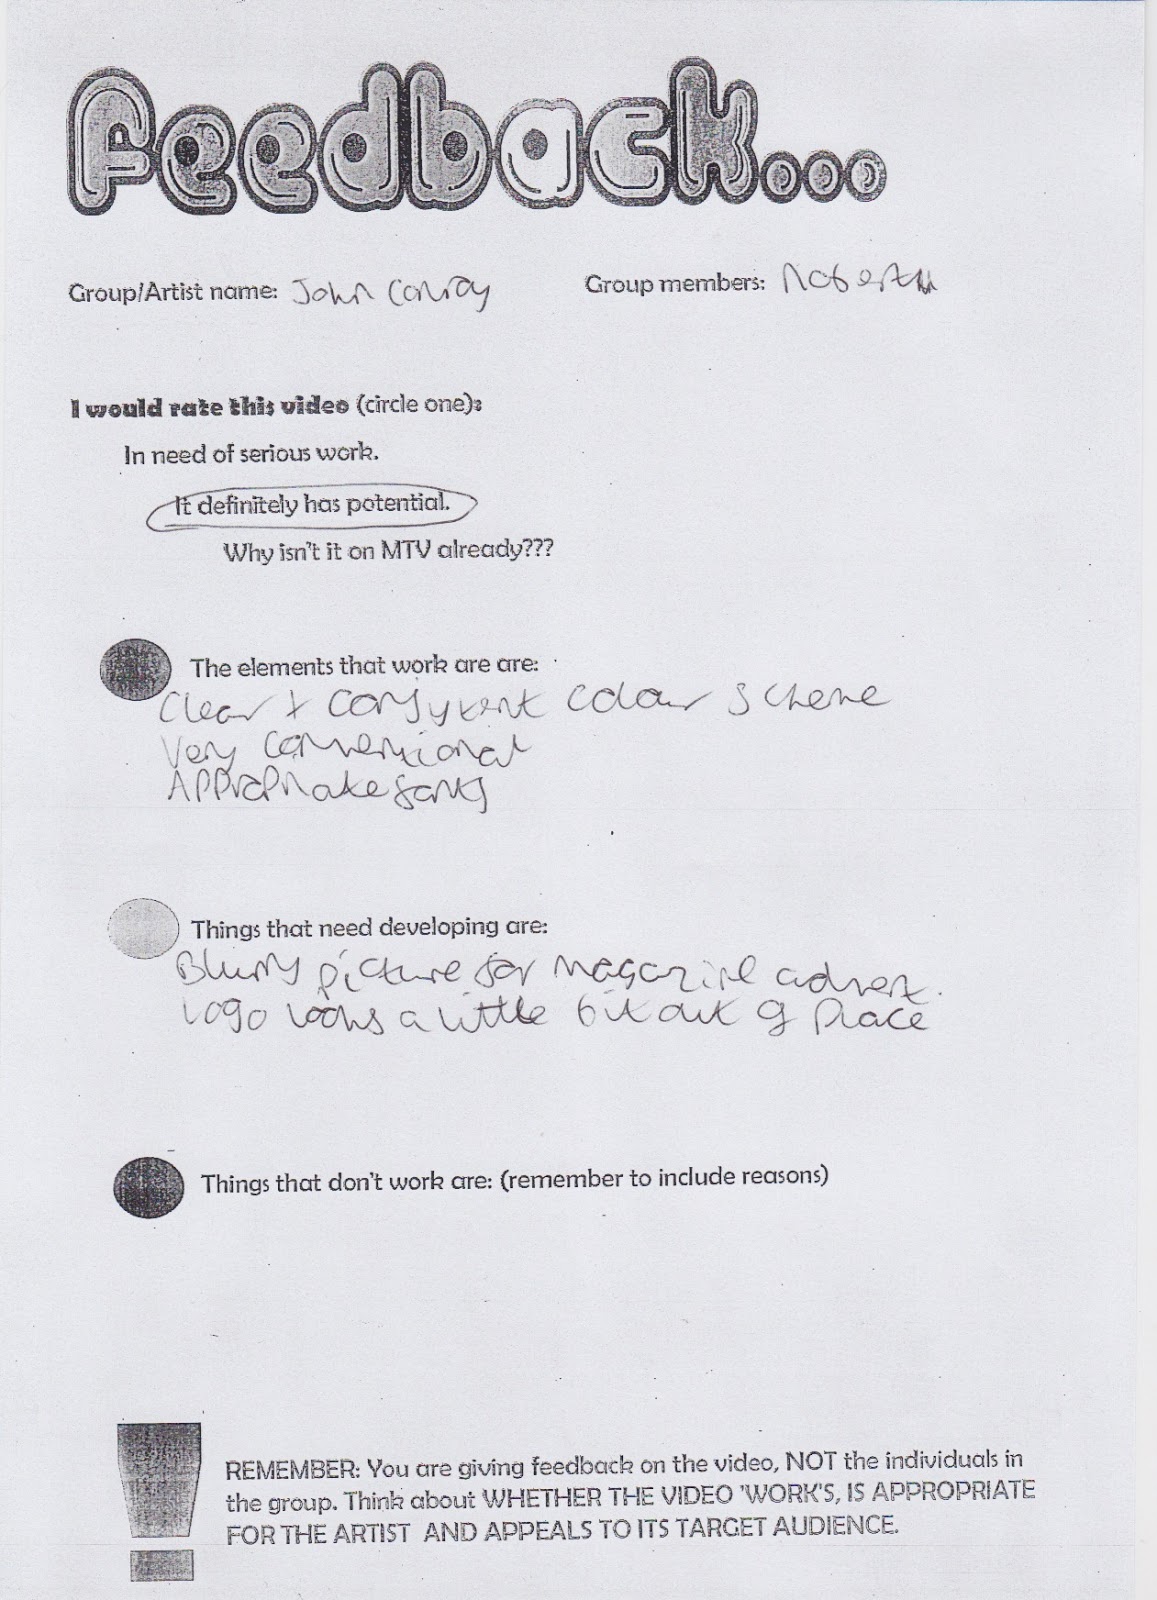 Feedback...
Group/Artist name: John Conroy
Group members: Robert
I would rate this video (circle one):
In need of serious work.
It definitely has potential.
Why isn't it on MTV already???
The elements that work are are:
Clear + consistent colour scheme
Very conventional
Appropriate fonts
Things that need developing are:
Blurry picture for magazine advert.
Logo looks a little bit out of place
Things that don't work are: (remember to include reasons)
REMEMBER: You are giving feedback on the video, NOT the individuals in
the group. Think about WHETHER THE VIDEO 'WORK'S, IS APPROPRIATE
FOR THE ARTIST AND APPEALS TO ITS TARGET AUDIENCE.